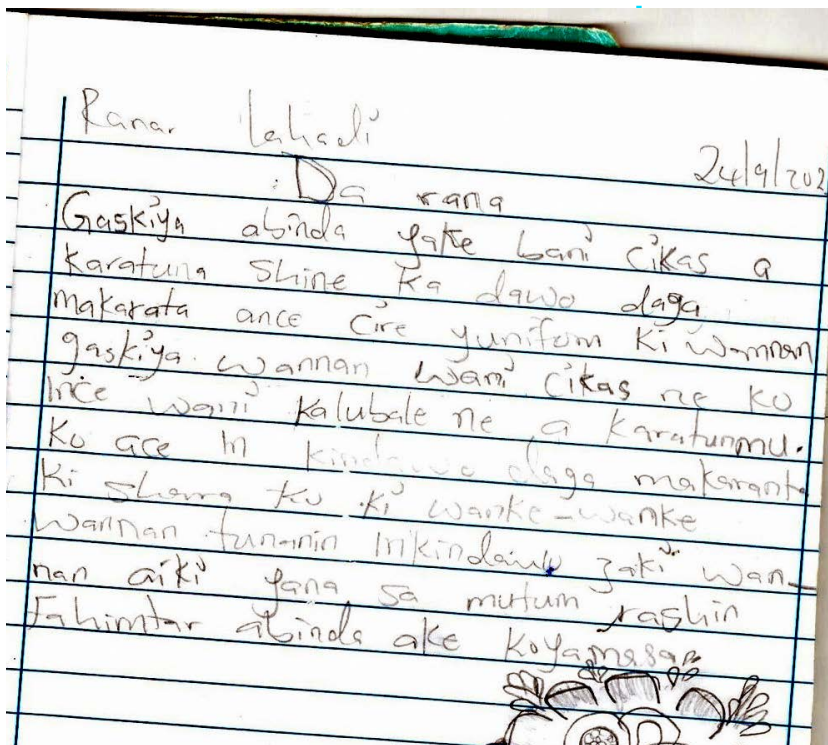 Ranar Lahadi
24/9/202
Da rana
Gaskiya abinda yake bani cikas a
karatuna shine ka dawo daga
makarata ance cire yunifom ki wannan
gaskiya wannan wani cikas ne ko
Ince wani kalubale ne a karatunmu.
Ko ace in kindawo daga makaranta
Ki sharra ko ki wanke-wanke
wannan tunanin Inkindawo zaki wan-
nan aiki yana sa mutum rashin
Fahimtar abinda ake koyamasa